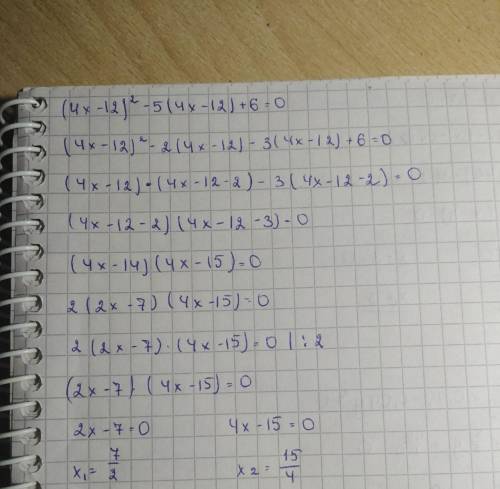 (4x-12)² -5(4x-12)+6=0
(4x-12)² -2(4x-12) -3(4x-12)+6=0
(4x-12)·(4x-12-2) -3(4x-12-2)=0
(4x-12-2)(4x-12-3)-0
(4x-14)(4x-15)=0
2(2x-7)(4x-15)=0
2(2x-7)·(4x-15)=0 | :2
(2x-7)(4x-15)=0
2x-7=0 4x-15=0
x₁=7/2 x₂=15/4